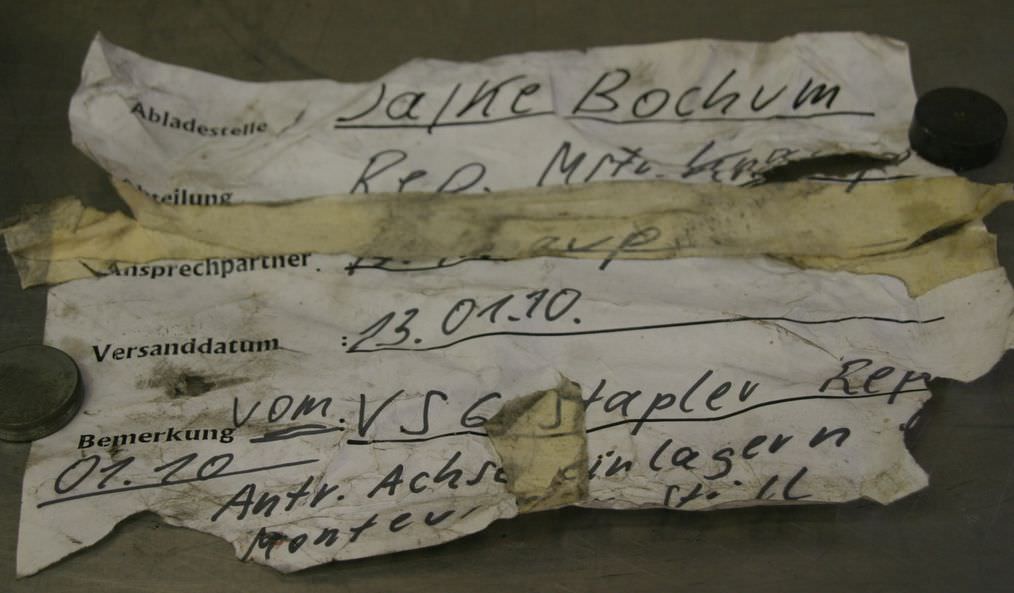 Abladestelle Jafke Bochum
Abteilung Rep. Mstr.
Ansprechpartner
Versanddatum : 13.01.10.
Bemerkung vom. VSG Stapler Rep
01.10
Antr. Achse einlagern
Monteur still